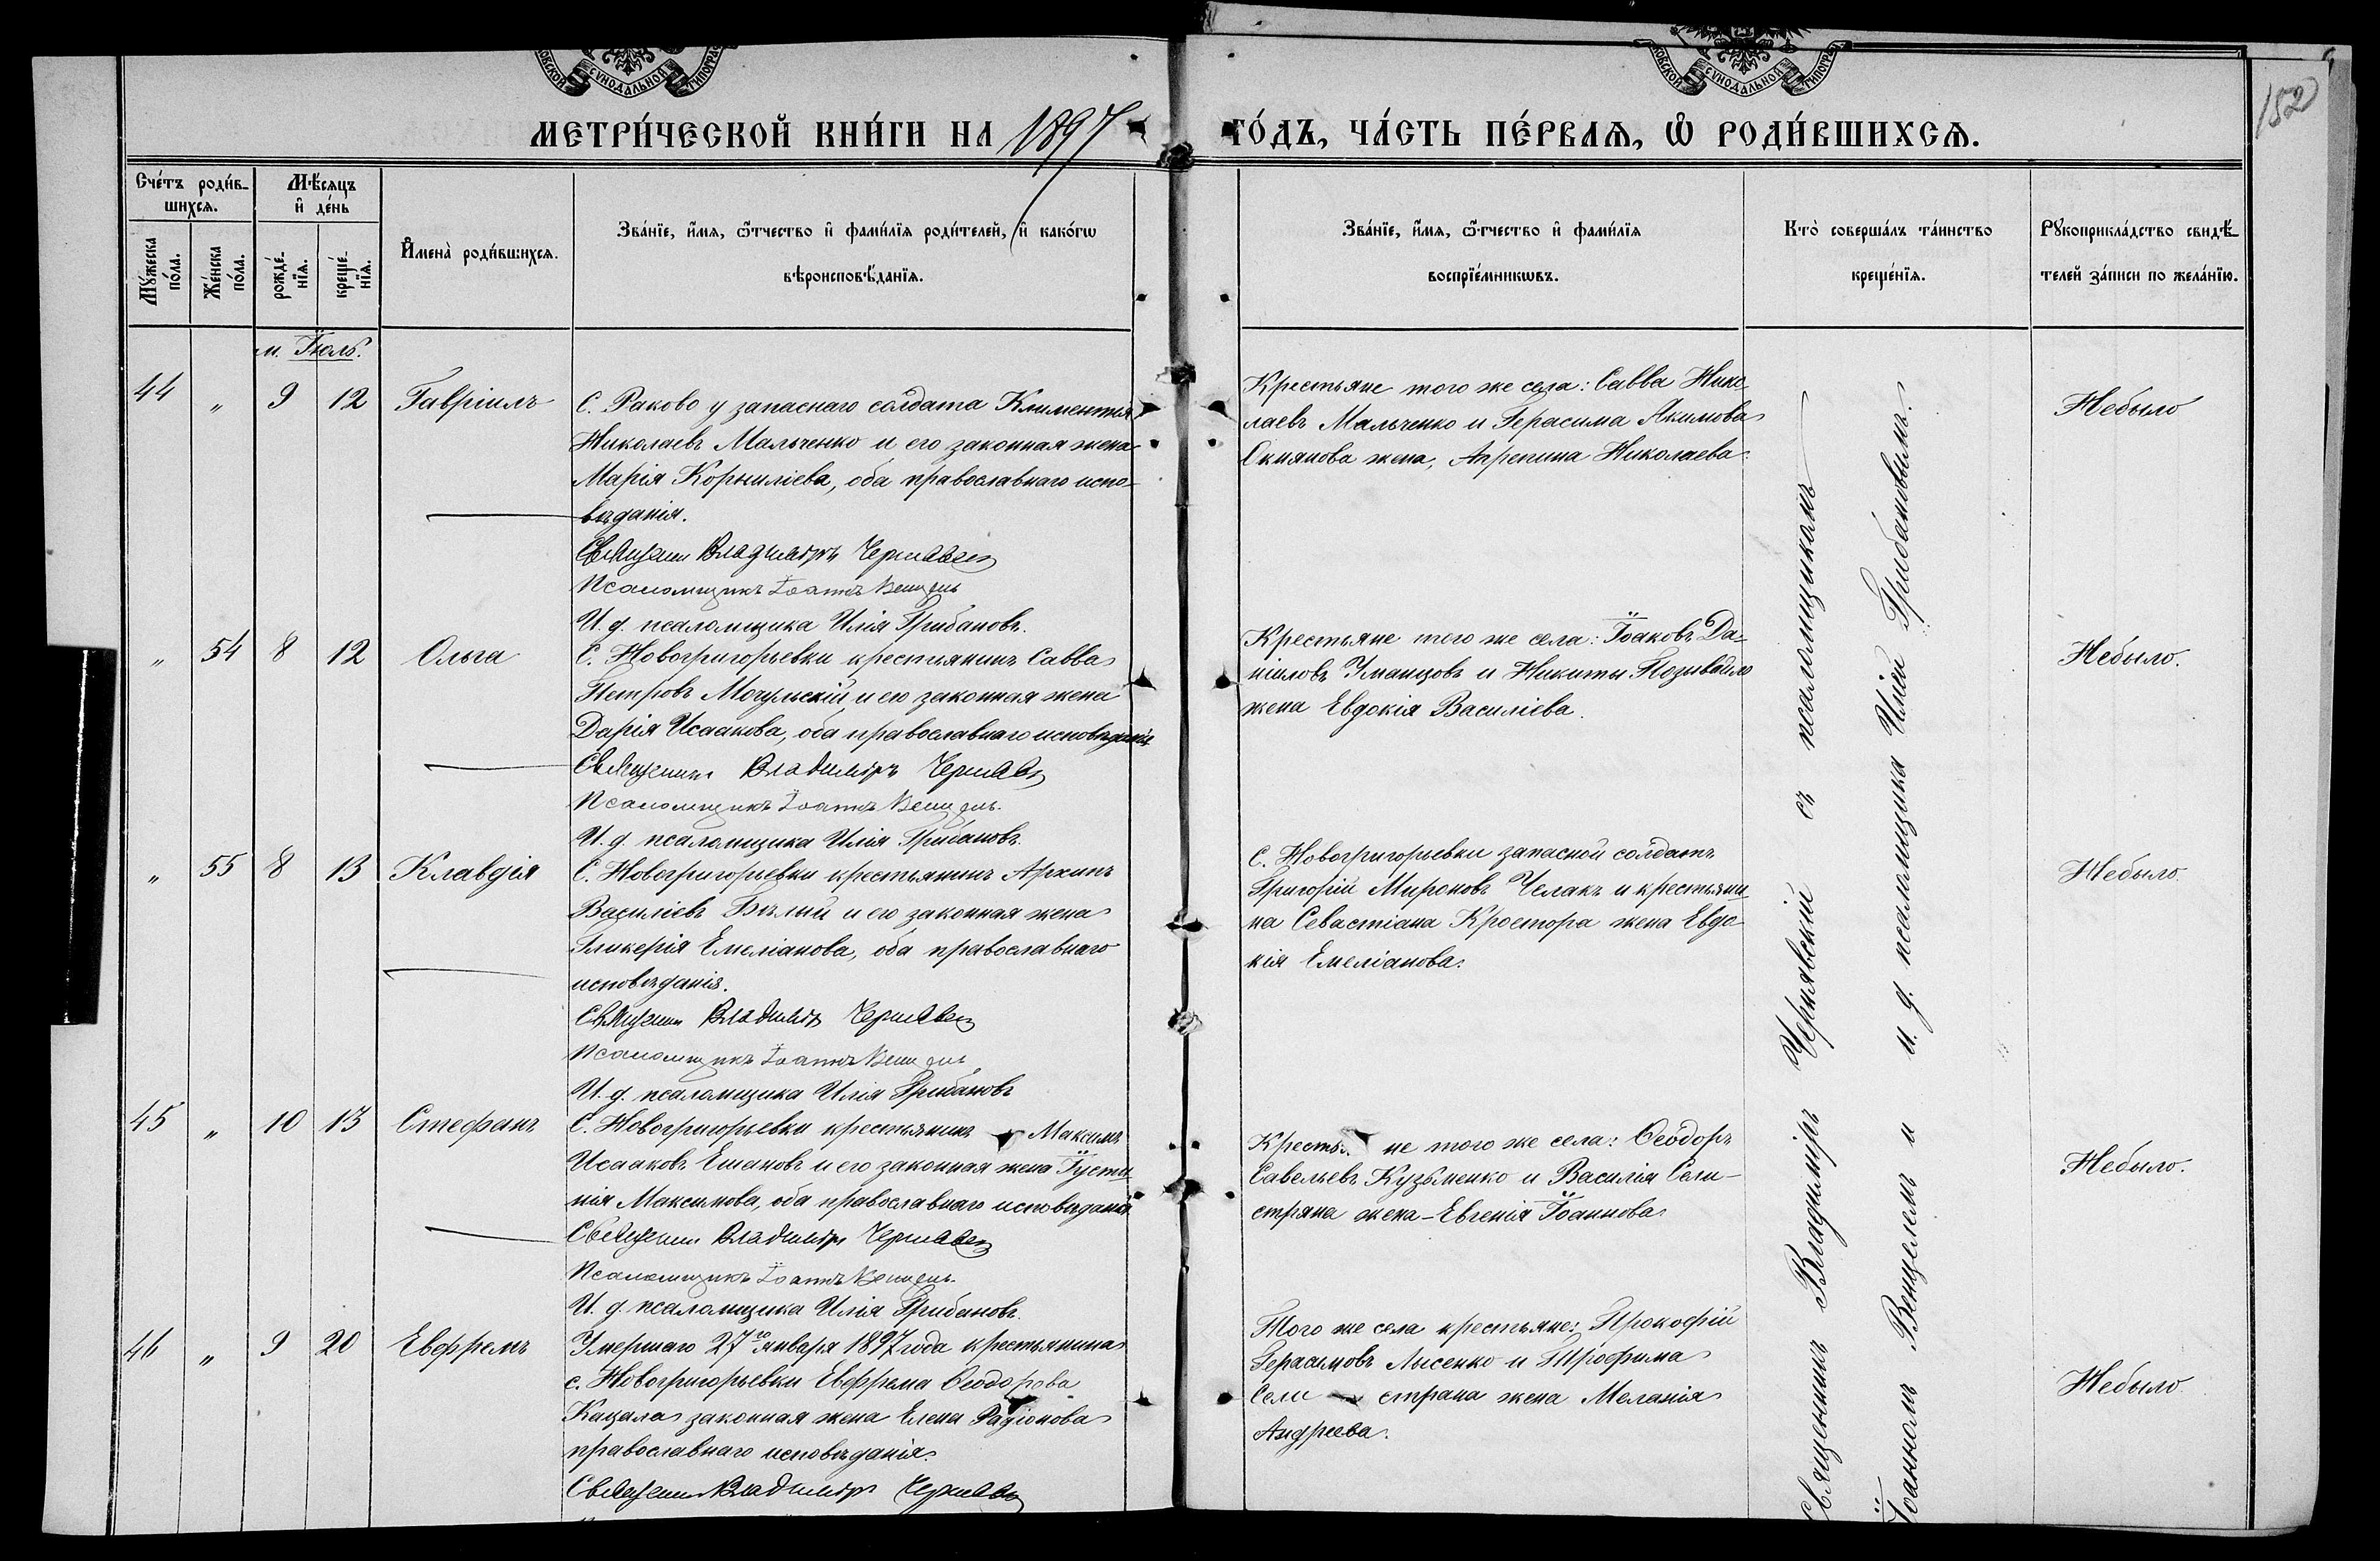 МОСКОВСКОЙ СУНОДАЛЬНОЙ ТИПОГРАФ
МЕТРИ́ЧЕСКОЙ КНИ́ГИ НА 1897
ГО́ДЪ, ЧА́СТЬ ПЕ́РВАѦ, Ѡ РОДИ́ВШИХСѦ.
152
Сче́тъ роди́в-
шихсѧ.
Мꙋ́жеска по́ла.
Же́нска по́ла.
Мѣ́сяцъ
и҆ де́нь
рожде́-нїѧ.
креще́-нїѧ.
И҆мена̀ роди́вшихсѧ.
Зва́нїе, и҆́мѧ, ѻ҆́тчество и҆ фами́лїѧ роди́телей, и҆ како́гѡ
вѣроисповѣ́данїѧ.
Зва́нїе, и҆́мѧ, ѻ҆́тчество и҆ фами́лїѧ
воспрїе́мникѡвъ.
Кто̀ соверша́лъ та́инство
креще́нїѧ.
Рꙋкоприкла́дство свидѣ́-
телей за́писи по жела́нїю.
м. Іюль.
44 " 9 12 Гавріилъ
С. Раково у запаснаго солдата Климентія
Николаевъ Мальченко и его законная жена
Марія Корниліева, оба православнаго испо-
вѣданія.
Священник Владиміръ Чернявск
Псаломщикъ Іоаннъ Венцель
И. д. псаломщика Илія Грибановъ.
Крестьяне того же села: Савва Нико-
лаевъ Мальченко и Герасима Акимова
жена, Агрепина Николаева.
Небыло
" 54 8 12 Ольга
С. Новогригорьевки крестьянинъ Савва
Петровъ Могульскій и его законная жена
Дарія Исаакова, оба православнаго исповѣданія
Священник Владиміръ Чернявск
Псаломщикъ Іоаннъ Венцель.
И. д. псаломщика Илія Грибановъ.
Крестьяне того же села: Іоаковъ Да-
ніиловъ Уманцовъ и Никиты Позывайло
жена Евдокія Василіева.
Небыло.
" 55 8 13 Клавдія
С. Новогригорьевки крестьянинъ Архипъ
Василіевъ Бѣлый и его законная жена
Гликерія Емеліанова, оба православнаго
исповѣданія.
Священник Владиміръ Чернявск
Псаломщикъ Іоаннъ Венцель
И. д. псаломщика Илія Грибановъ
С. Новогригорьевки запасной солдатъ
Григорій Мироновъ Челакъ и крестьяни-
на Севастіана Кроетора жена Евдо-
кія Емеліанова.
Небыло
45 " 10 13 Стефанъ
С. Новогригорьевки крестьянинъ Максимъ
Исааковъ Ешановъ и его законная жена Іуста-
нія Максимова, оба православнаго исповѣданія
Священник Владиміръ Чернявск
Псаломщикъ Іоаннъ Венцель.
И. д. псаломщика Илія Грибановъ.
Кресть не того же села: Ѳеодоръ
Савельевъ Кузьменко и Василія Сели-
страна жена - Евгенія Іоаннова.
Небыло.
46 " 9 20 Евфремъ
Умершаго 27го января 1897 года крестьянина
с. Новогригорьевки Евфрема Ѳеодорова
Кацала законная жена Елена Радіонова
православнаго исповѣданія.
Священник Владиміръ Чернявск
Того же села крестьяне: Прокофій
Герасимовъ Лысенко и Трофима
Сели страна жена Меланія
Андреева.
Небыло
Священникъ Владиміръ Чернявскій съ псаломщикомъ
Іоанномъ Венцелемъ и и. д. псаломщика Иліей Грибановымъ.